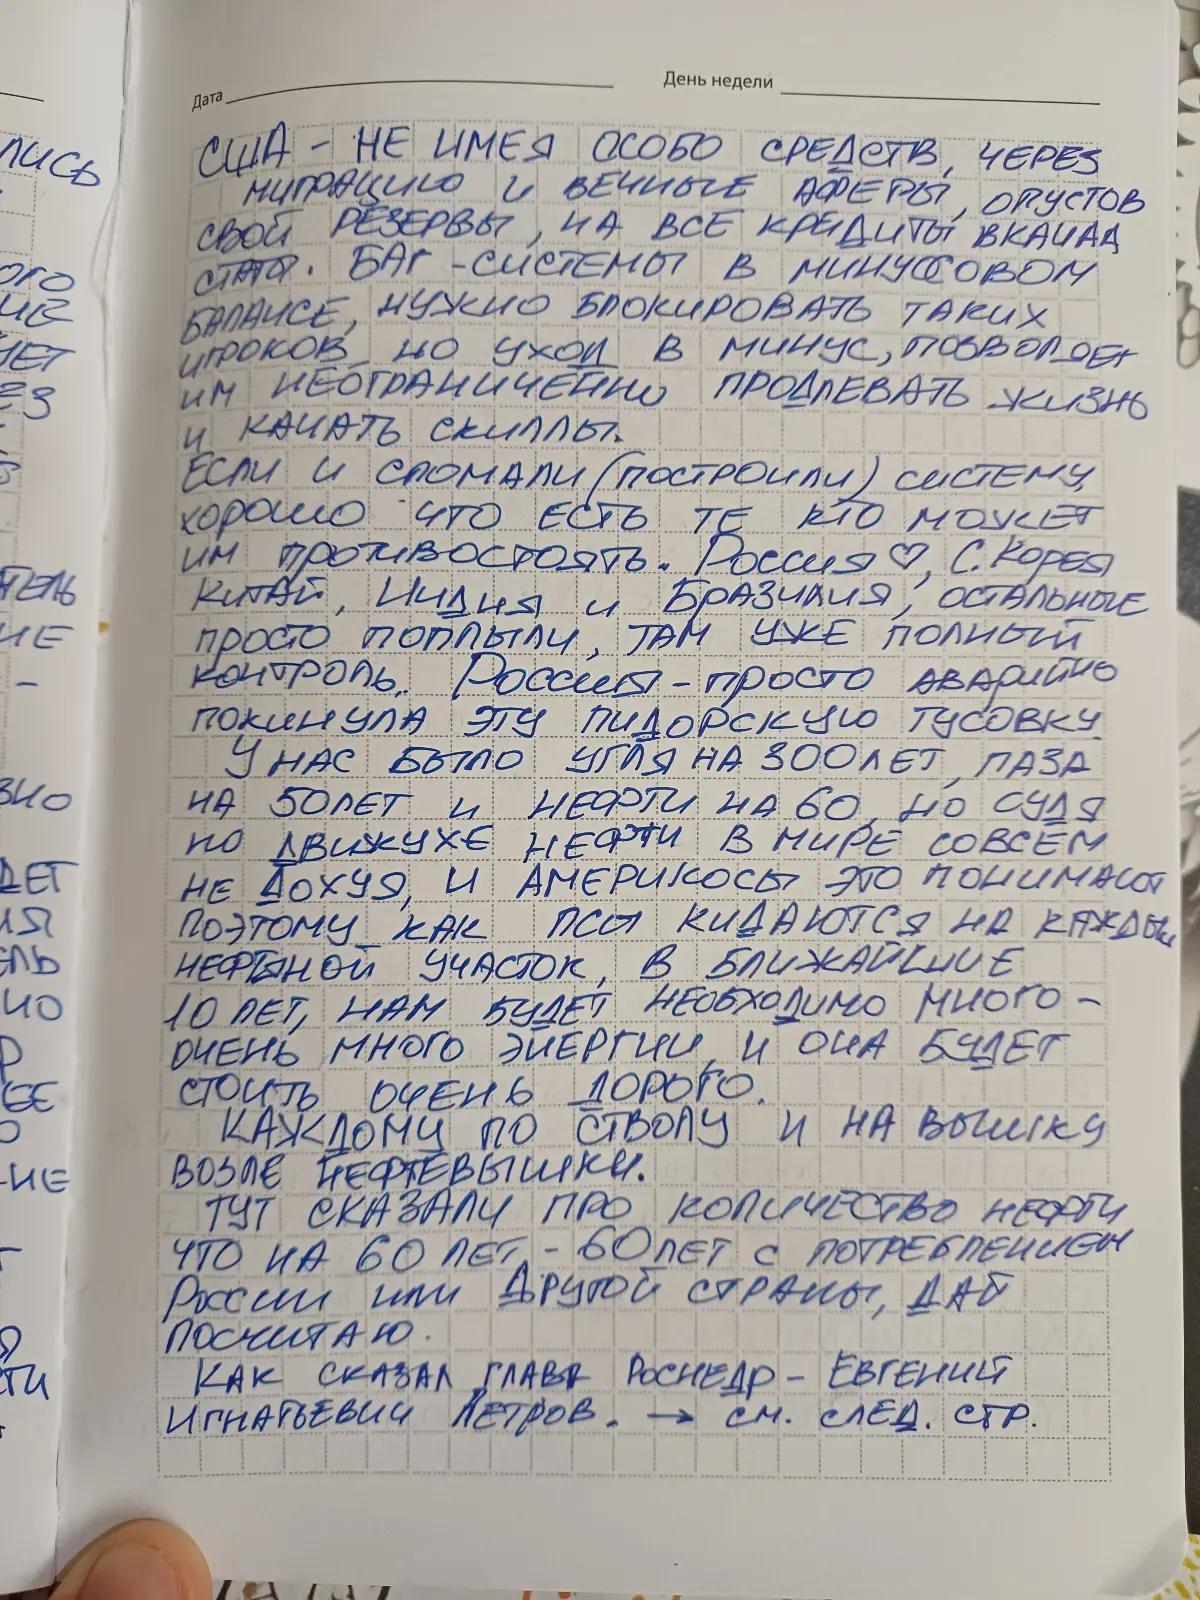 Дата День недели
США - НЕ ИМЕЯ ОСОБО СРЕДСТВ, ЧЕРЕЗ
МИГРАЦИЮ И ВЕЧНЫЕ АФЕРЫ, ОПУСТОВ
СВОЙ РЕЗЕРВЫ, НА ВСЕ КРЕДИТЫ ВКАЧАЛ
СТАТЫ. БАГ-СИСТЕМЫ В МИНУССОВОМ
БАЛАНСЕ, НУЖНО БЛОКИРОВАТЬ ТАКИХ
ИГРОКОВ, НО УХОД В МИНУС, ПОЗВОЛЯЕТ
ИМ НЕОГРАНИЧЕННО ПРОДЛЕВАТЬ ЖИЗНЬ
И КАЧАТЬ СКИЛЛЫ.
ЕСЛИ И СЛОМАЛИ (ПОСТРОИЛИ) СИСТЕМУ,
ХОРОШО ЧТО ЕСТЬ ТЕ КТО МОЖЕТ
ИМ ПРОТИВОСТОЯТЬ. РОССИЯ ♡, С. КОРЕЯ
КИТАЙ, ИНДИЯ И БРАЗИЛИЯ, ОСТАЛЬНЫЕ
ПРОСТО ПОПЛЫЛИ, ТАМ УЖЕ ПОЛНЫЙ
КОНТРОЛЬ. РОССИЯ - ПРОСТО АВАРИЙНО
ПОКИНУЛА ЭТУ ПИДОРСКУЮ ТУСОВКУ.
У НАС БЫЛО УГЛЯ НА 300 ЛЕТ, ГАЗА
НА 50 ЛЕТ И НЕФТИ НА 60, НО СУДЯ
ПО ДВИЖУХЕ НЕФТИ В МИРЕ СОВСЕМ
НЕ ДОХУЯ, И АМЕРИКОСЫ ЭТО ПОНИМАЮТ
ПОЭТОМУ КАК ПСЫ КИДАЮТСЯ НА КАЖДЫЙ
НЕФТЯНОЙ УЧАСТОК, В БЛИЖАЙШИЕ
10 ЛЕТ, НАМ БУДЕТ НЕОБХОДИМО МНОГО -
ОЧЕНЬ МНОГО ЭНЕРГИИ, И ОНА БУДЕТ
СТОИТЬ ОЧЕНЬ ДОРОГО.
КАЖДОМУ ПО СТВОЛУ И НА ВЫШКУ
ВОЗЛЕ НЕФТЕВЫШКИ.
ТУТ СКАЗАЛИ ПРО КОЛИЧЕСТВО НЕФТИ
ЧТО НА 60 ЛЕТ - 60 ЛЕТ С ПОТРЕБЛЕНИЕМ
РОССИИ ИЛИ ДРУГОЙ СТРАНЫ, ДАЙ
ПОСЧИТАЮ.
КАК СКАЗАЛ ГЛАВА РОСНЕДР - ЕВГЕНИЙ
ИГНАТЬЕВИЧ ПЕТРОВ. → СМ. СЛЕД. СТР.